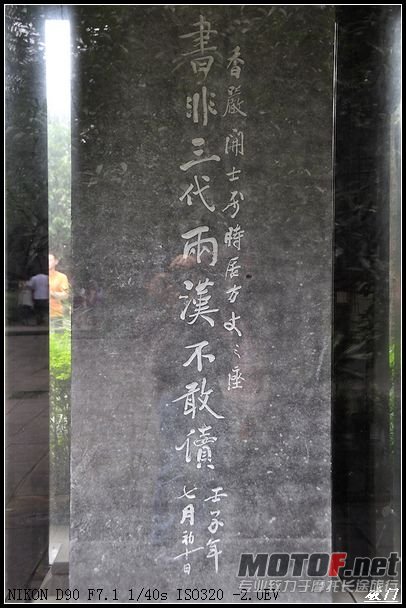 香嚴開士時居方丈之座
書非三代兩漢不敢讀
壬子年
七月初十日
MOTOF.net
专业致力于摩托长途旅行
NIKON D90 F7.1 1/40s ISO320 -2.0EV